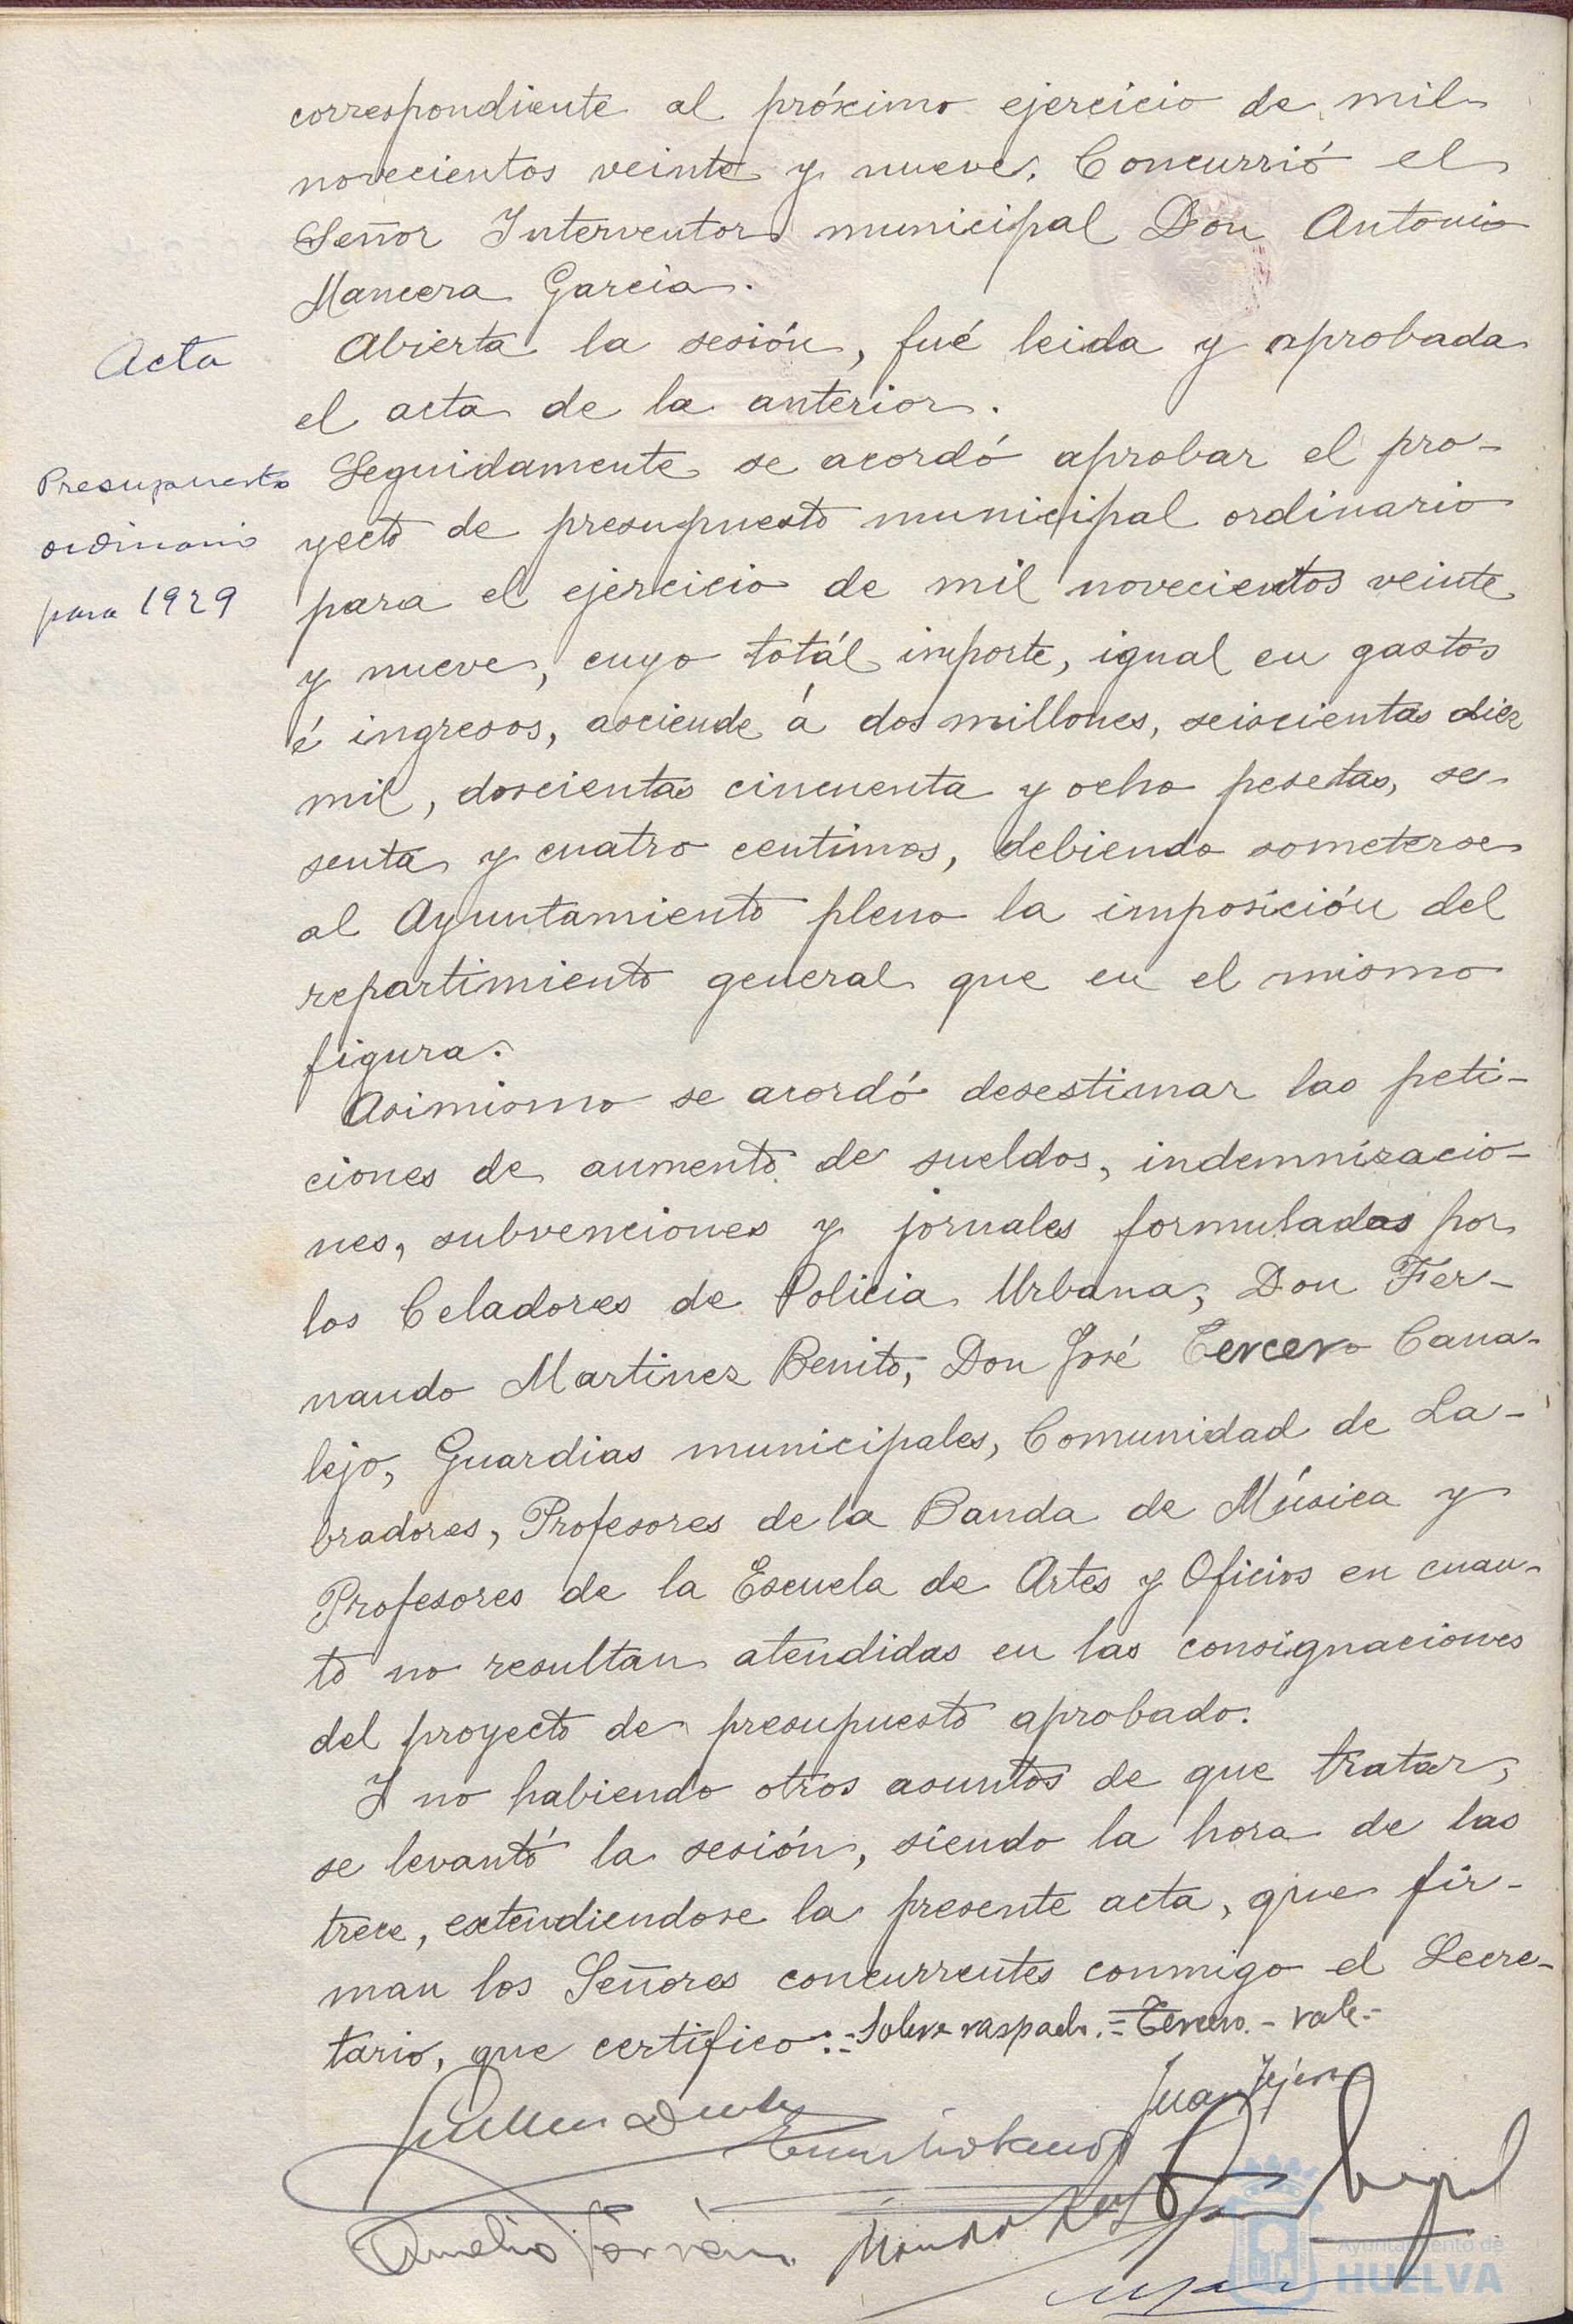 correspondiente al próximo ejercicio de mil
novecientos veinte y nueve. Concurrió el
Señor Interventor municipal Don Antonio
Mancera Garcia.
Acta
Abierta la sesión, fué leida y aprobada
el acta de la anterior.
Presupuesto
ordinario
para 1929
Seguidamente se acordó aprobar el pro-
yecto de presupuesto municipal ordinario
para el ejercicio de mil novecientos veinte
y nueve, cuyo totál importe, igual en gastos
é ingresos, asciende á dos millones, seiscientas diez
mil, doscientas cincuenta y ocho pesetas, se-
senta y cuatro centimos, debiendo someterse
al Ayuntamiento pleno la imposición del
repartimiento general que en el mismo
figura.
Asimismo se acordó desestimar las peti-
ciones de aumento de sueldos, indemnizacio-
nes, subvenciones y jornales formuladas por
los Celadores de Policia Urbana, Don Fer-
nando Martinez Benito, Don José Tercero Cana-
lejo, Guardias municipales, Comunidad de La-
bradores, Profesores de la Banda de Música y
Profesores de la Escuela de Artes y Oficios en cuan-
to no resultan atendidas en las consignaciones
del proyecto de presupuesto aprobado.
Y no habiendo otros asuntos de que tratar,
se levantó la sesión, siendo la hora de las
trece, extendiendose la presente acta, que fir-
man los Señores concurrentes conmigo el Secre-
tario, que certifico:=Sobre raspado.=Tercero.-Vale.-
Juan
Amelio
Ayuntamiento de
HUELVA